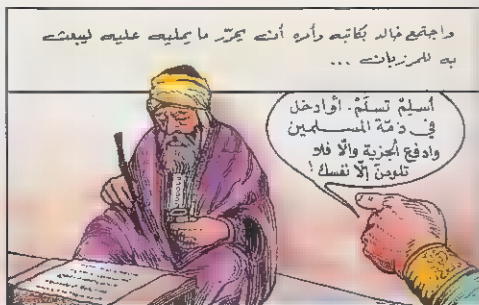 واجتمع خالد بكاتبه وأمره أن يحرّر ما يمليه عليه ليبعث
به للمرزبان ...
أسلِمْ تسلَمْ. أو ادخل
في ذمّة المسلمين
وادفع الجزية وإلّا فلا
تلومنّ إلّا نفسك!